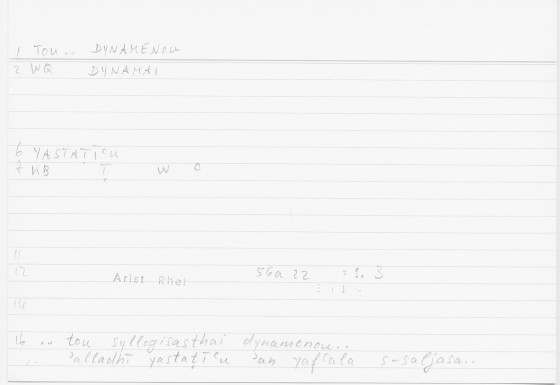 1 TOU .. DYNAMENOU
2 WQ DYNAMAI
6 YASTAṬĪʿU
7 KB Ṭ W ʿ
11
12 Arist Rhet 56a 22 = 1. 3
14
16 .. tou syllogisasthai dynamenou..
.. ʾalladhī yastaṭīʿu ʾan yafʿala s-saljasa..